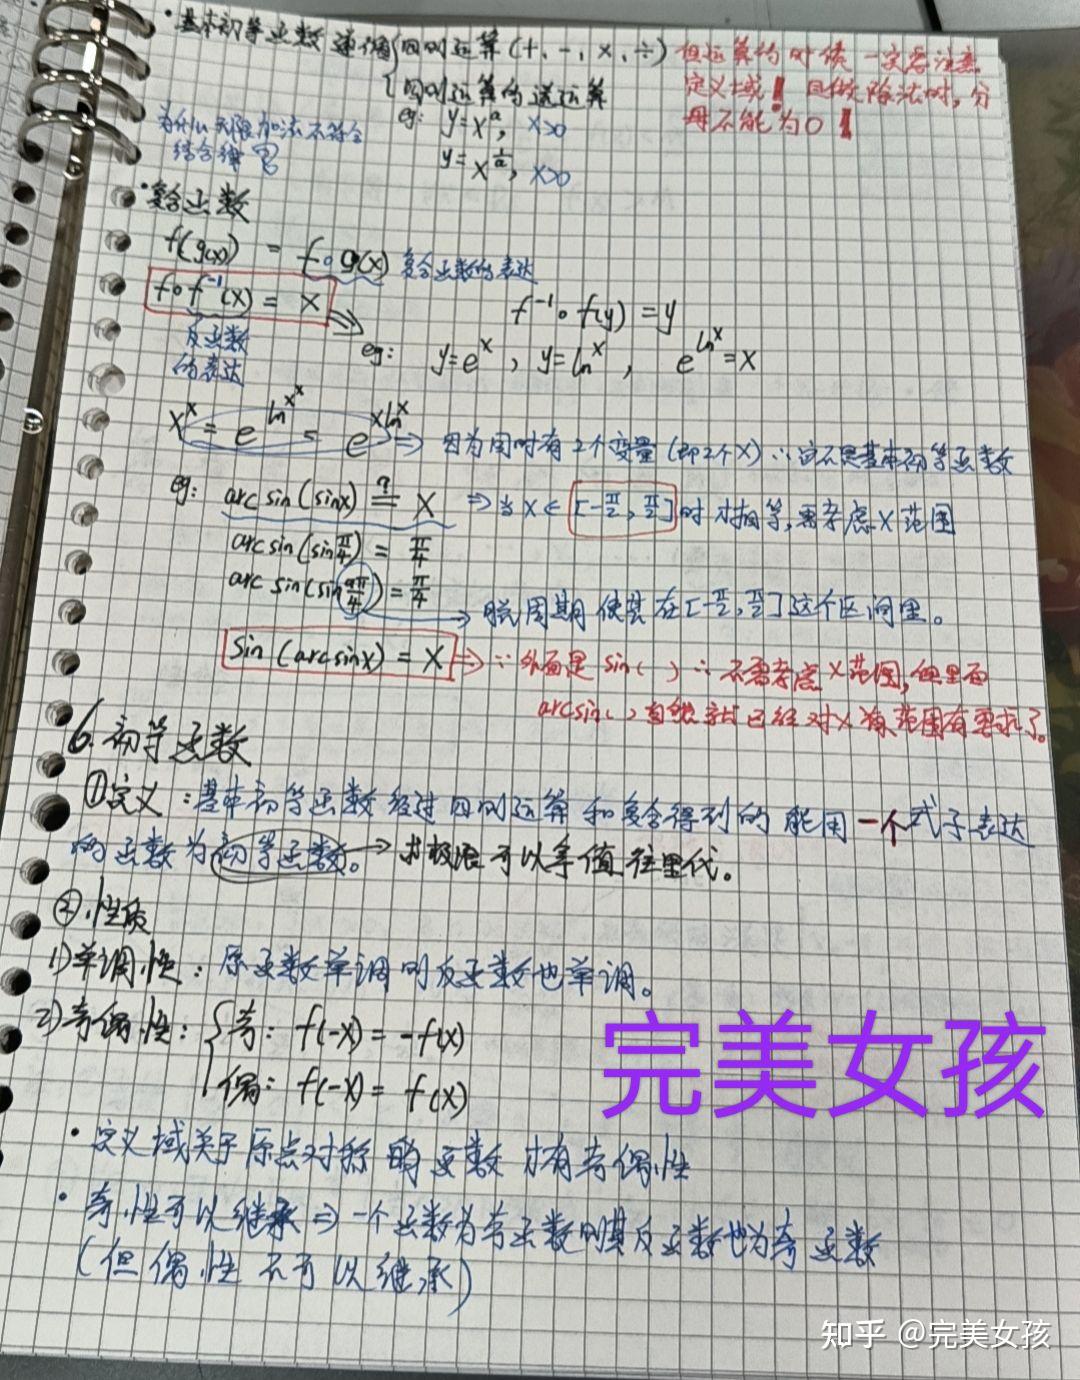 ·基本初等函数 遵循{四则运算(+、-、×、÷) 但运算的时候一定要注意
{四则运算的逆运算 定义域！且做除法时，分
母不能为0！
eg: y=x^a, x>0
y=x^{1/a}, x>0
为什么无限加法不符合
结合律？
·复合函数
f(g(x)) = f∘g(x) 复合函数的表达
f∘f⁻¹(x) = x ⇒ f⁻¹∘f(y) = y
反函数
的表达
eg: y=e^x, y=ln^x, e^{ln^x}=x
x^x = e^{ln^{x^x}} = e^{xln^x} ⇒ 因为同时有2个变量(即2个x) ∴这不是基本初等函数
eg: arcsin(sinx) ≟ x ⇒ 当x∈[-π/2, π/2]时才相等，需考虑x范围
arcsin(sin π/4) = π/4
arcsin(sin 9π/4) = π/4
→ 脱周期使其在[-π/2, π/2]这个区间里。
sin(arcsinx) = x ⇒ ∵外面是sin( ) ∴不需考虑x范围，但里面
arcsin( )自然就已经对x有范围有要求了。
6.初等函数
①定义：基本初等函数经过四则运算和复合得到的能用一个式子表达
的函数为初等函数。→求极限可以拿值往里代。
②.性质
1)单调性：原函数单调则反函数也单调。
2)奇偶性：{奇：f(-x) = -f(x)
{偶：f(-x) = f(x)
·定义域关于原点对称的函数才有奇偶性
·奇性可以继承⇒一个函数为奇函数则其反函数也为奇函数
(但偶性不可以继承)
完美女孩
知乎 @完美女孩